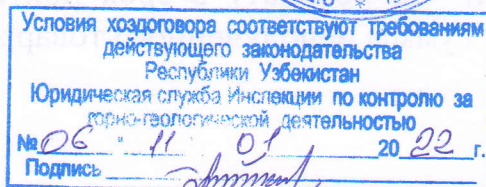 Условия хоздоговора соответствуют требованиям
действующего законодательства
Республики Узбекистан
Юридическая служба Инспекции по контролю за
горно-геологической деятельностью
№ 06 " 11 01 20 22 г.
Подпись